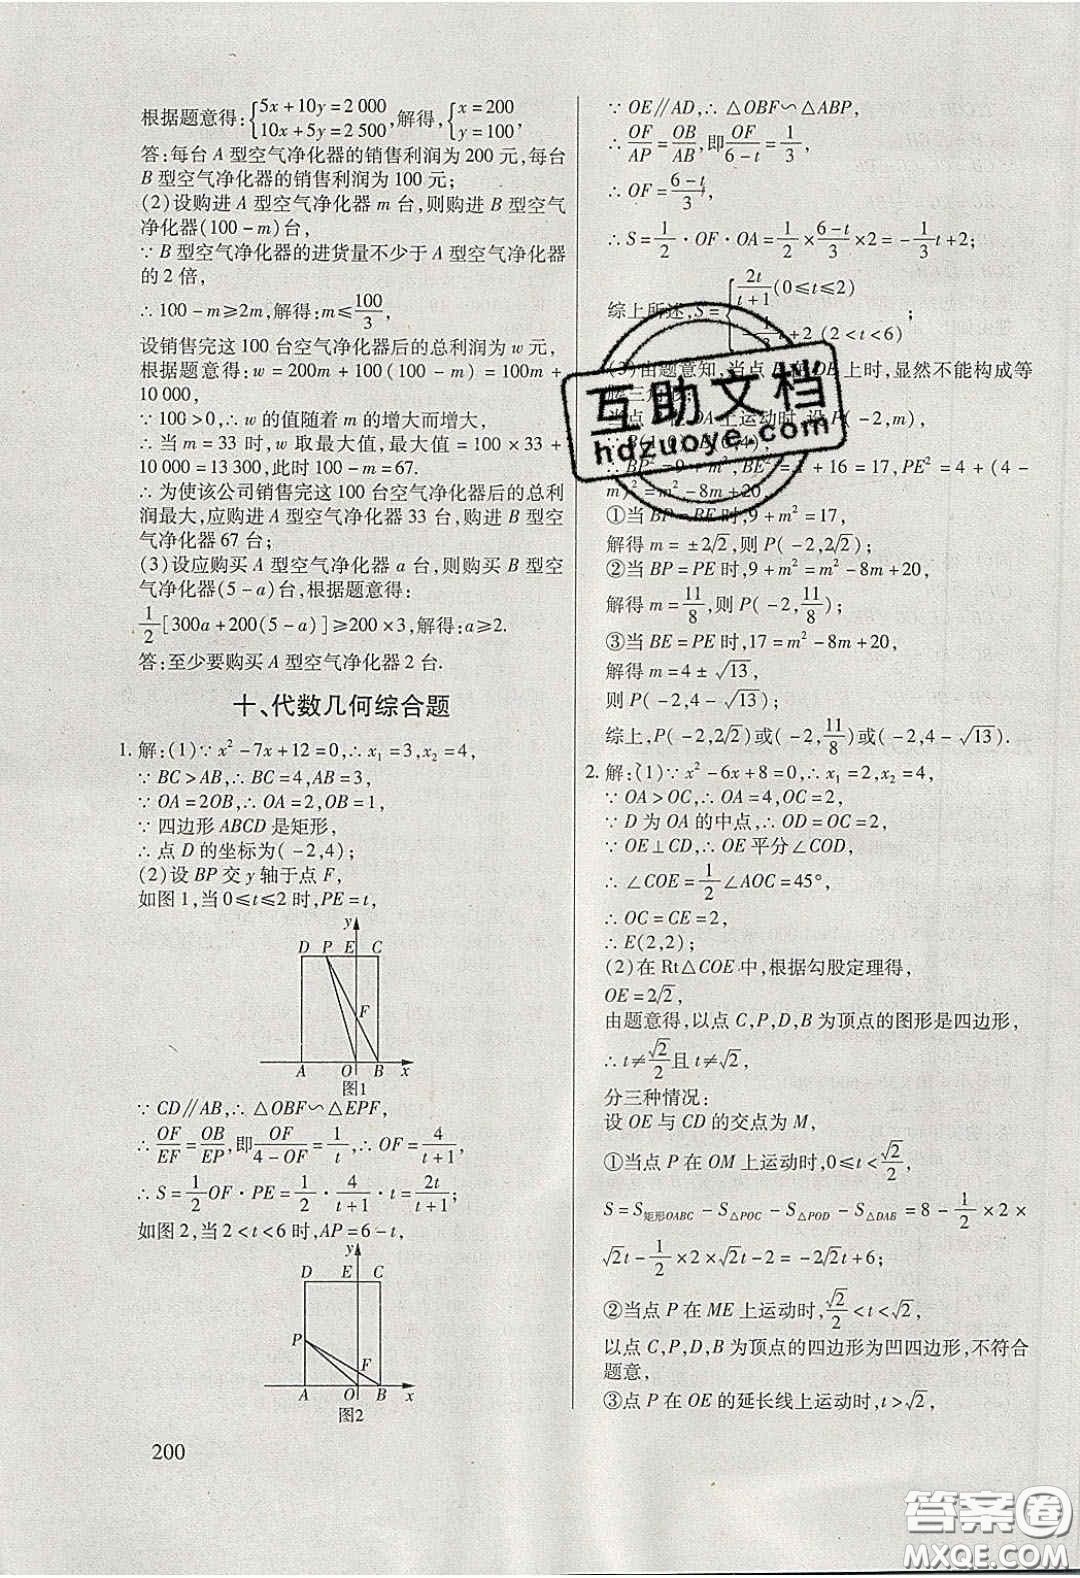 根据题意得:{5x+10y=2 000
10x+5y=2 500,解得,{x=200
y=100,
答:每台 A 型空气净化器的销售利润为 200 元,每台
B 型空气净化器的销售利润为 100 元;
(2)设购进 A 型空气净化器 m 台,则购进 B 型空气
净化器(100-m)台,
∵ B 型空气净化器的进货量不少于 A 型空气净化器
的 2 倍,
∴ 100-m≥2m,解得:m≤100/3,
设销售完这 100 台空气净化器后的总利润为 w 元,
根据题意得:w=200m+100(100-m)=100m+
10 000,
∵ 100>0,∴ w 的值随着 m 的增大而增大,
∴ 当 m=33 时,w 取最大值,最大值=100×33+
10 000=13 300,此时 100-m=67.
∴ 为使该公司销售完这 100 台空气净化器后的总利
润最大,应购进 A 型空气净化器 33 台,购进 B 型空
气净化器 67 台;
(3)设应购买 A 型空气净化器 a 台,则购买 B 型空
气净化器(5-a)台,根据题意得:
1/2[300a+200(5-a)]≥200×3,解得:a≥2.
答:至少要购买 A 型空气净化器 2 台.
十、代数几何综合题
1. 解:(1)∵ x²-7x+12=0,∴ x₁=3,x₂=4,
∵ BC>AB,∴ BC=4,AB=3,
∵ OA=2OB,∴ OA=2,OB=1,
∵ 四边形 ABCD 是矩形,
∴ 点 D 的坐标为(-2,4);
(2)设 BP 交 y 轴于点 F,
如图 1,当 0≤t≤2 时,PE=t,
y
D P E C
F
A O B x
图1
∵ CD∥AB,∴ △OBF∽△EPF,
∴ OF/EF=OB/EP,即OF/(4-OF)=1/t,∴ OF=4/(t+1),
∴ S=1/2 OF·PE=1/2·4/(t+1)·t=2t/(t+1);
如图 2,当 2<t<6 时,AP=6-t,
y
D E C
P
F
A O B x
图2
200
∵ OE∥AD,∴ △OBF∽△ABP,
∴ OF/AP=OB/AB,即OF/(6-t)=1/3,
∴ OF=(6-t)/3,
∴ S=1/2·OF·OA=1/2×(6-t)/3×2=-1/3t+2;
综上所述,S={2t/(t+1)(0≤t≤2)
-1/3t+2 (2<t<6);
(3)由题意知,当点 P 在 DE 上时,显然不能构成等
腰三角形;
当点 P 在 OA 上运动时,设 P(-2,m),
∵ B(1,0),E(0,4),
∴ BP²=9+m²,BE²=1+16=17,PE²=4+(4-
m)²=m²-8m+20,
①当 BP=BE 时,9+m²=17,
解得 m=±2√2,则 P(-2,2√2);
②当 BP=PE 时,9+m²=m²-8m+20,
解得 m=11/8,则 P(-2,11/8);
③当 BE=PE 时,17=m²-8m+20,
解得 m=4±√13,
则 P(-2,4-√13);
综上,P(-2,2√2)或(-2,11/8)或(-2,4-√13).
2. 解:(1)∵ x²-6x+8=0,∴ x₁=2,x₂=4,
∵ OA>OC,∴ OA=4,OC=2,
∵ D 为 OA 的中点,∴ OD=OC=2,
∵ OE⊥CD,∴ OE 平分∠COD,
∴ ∠COE=1/2∠AOC=45°,
∴ OC=CE=2,
∴ E(2,2);
(2)在 Rt△COE 中,根据勾股定理得,
OE=2√2,
由题意得,以点 C,P,D,B 为顶点的图形是四边形,
∴ t≠√2/2且 t≠√2,
分三种情况:
设 OE 与 CD 的交点为 M,
①当点 P 在 OM 上运动时,0≤t<√2/2,
S=S矩形OABC-S△POC-S△POD-S△DAB=8-1/2×2×
√2t-1/2×2×√2t-2=-2√2t+6;
②当点 P 在 ME 上运动时,√2/2<t<√2,
以点 C,P,D,B 为顶点的四边形为凹四边形,不符合
题意,
③点 P 在 OE 的延长线上运动时,t>√2,
互助文档
hdzuoye.com
答案圈
MXQE.COM